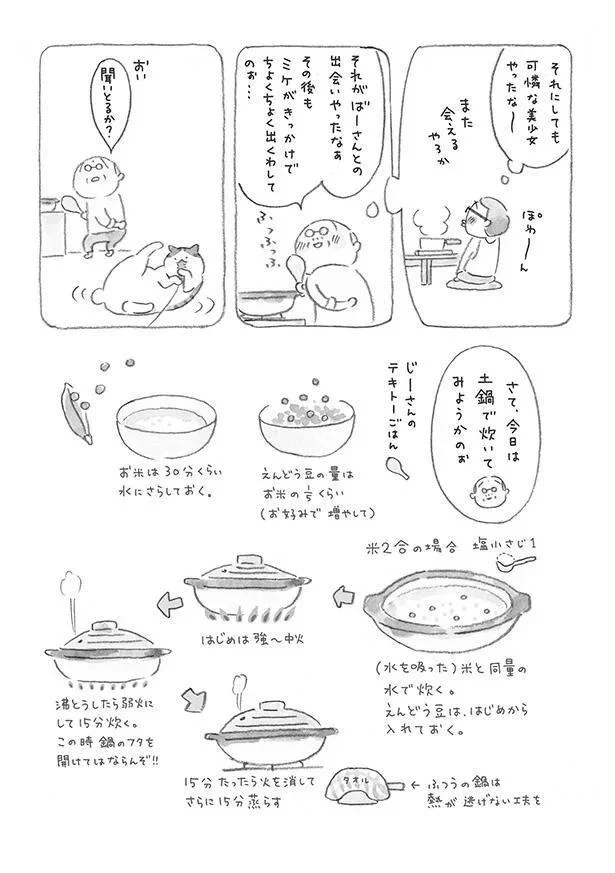 それにしても
可憐な美少女
やったなー
また
会える
やろか
ぽわーん
それがばーさんとの
出会いやったなぁ
その後も
ミケがきっかけで
ちょくちょく出くわして
のぉ…
ふっふっふっ
おい
聞いとるか?
さて、今日は
土鍋で炊いて
みようかのぉ
じーさんの
テキトーごはん
えんどう豆の量は
お米の1/5くらい
(お好みで増やして)
お米は30分くらい
水にさらしておく。
米2合の場合 塩小さじ1
(水を吸った)米と同量の
水で炊く。
えんどう豆は、はじめから
入れておく。
はじめは強〜中火
沸とうしたら弱火に
して15分炊く。
この時鍋のフタを
開けてはならんぞ!!
15分たったら火を消して
さらに15分蒸らす
タオル
←ふつうの鍋は
熱が逃げない工夫を